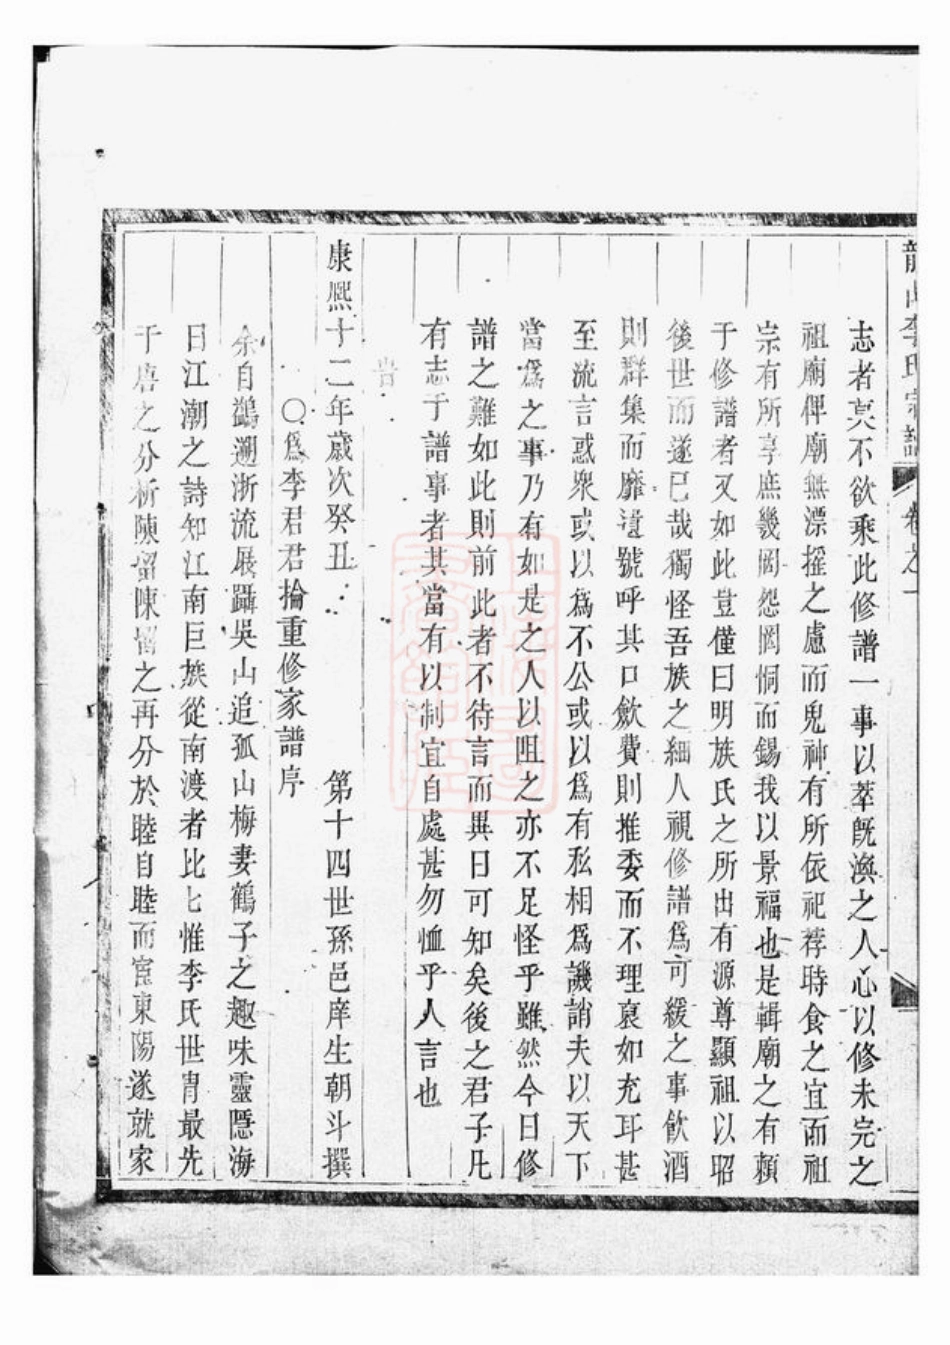 李氏宗譜 卷之一
志者莫不欲乘此修譜一事以萃既渙之人心以修未完之
祖廟俾廟無漂摧之慮而鬼神有所依祀荐時食之宜而祖
宗有所享庶幾罔怨罔恫而錫我以景福也是輯廟之有頼
于修譜者又如此豈僅曰明族氏之所出有源尊顯祖以昭
後世而遂已哉獨怪吾族之細人視修譜為可緩之事飲酒
則群集而靡遺號呼其口歛費則推委而不理裒如充耳甚
至流言惑衆或以為不公或以為有私相為譏誚夫以天下
當為之事乃有如是之人以阻之亦不足怪乎雖然今日修
譜之難如此則前此者不待言而異日可知矣後之君子凡
有志于譜事者其當有以制宜自處甚勿恤乎人言也
旹
康熙十二年歲次癸丑 第十四世孫邑庠生朝斗撰
○為李君君掄重修家譜序
余自鷀遡浙流展躡吳山追孤山梅妻鶴子之趣味靈隱海
日江潮之詩知江南巨族從南渡者比匕惟李氏世胄最先
于唐之分析陳留陳留之再分於睦自睦而宦東陽遂就家